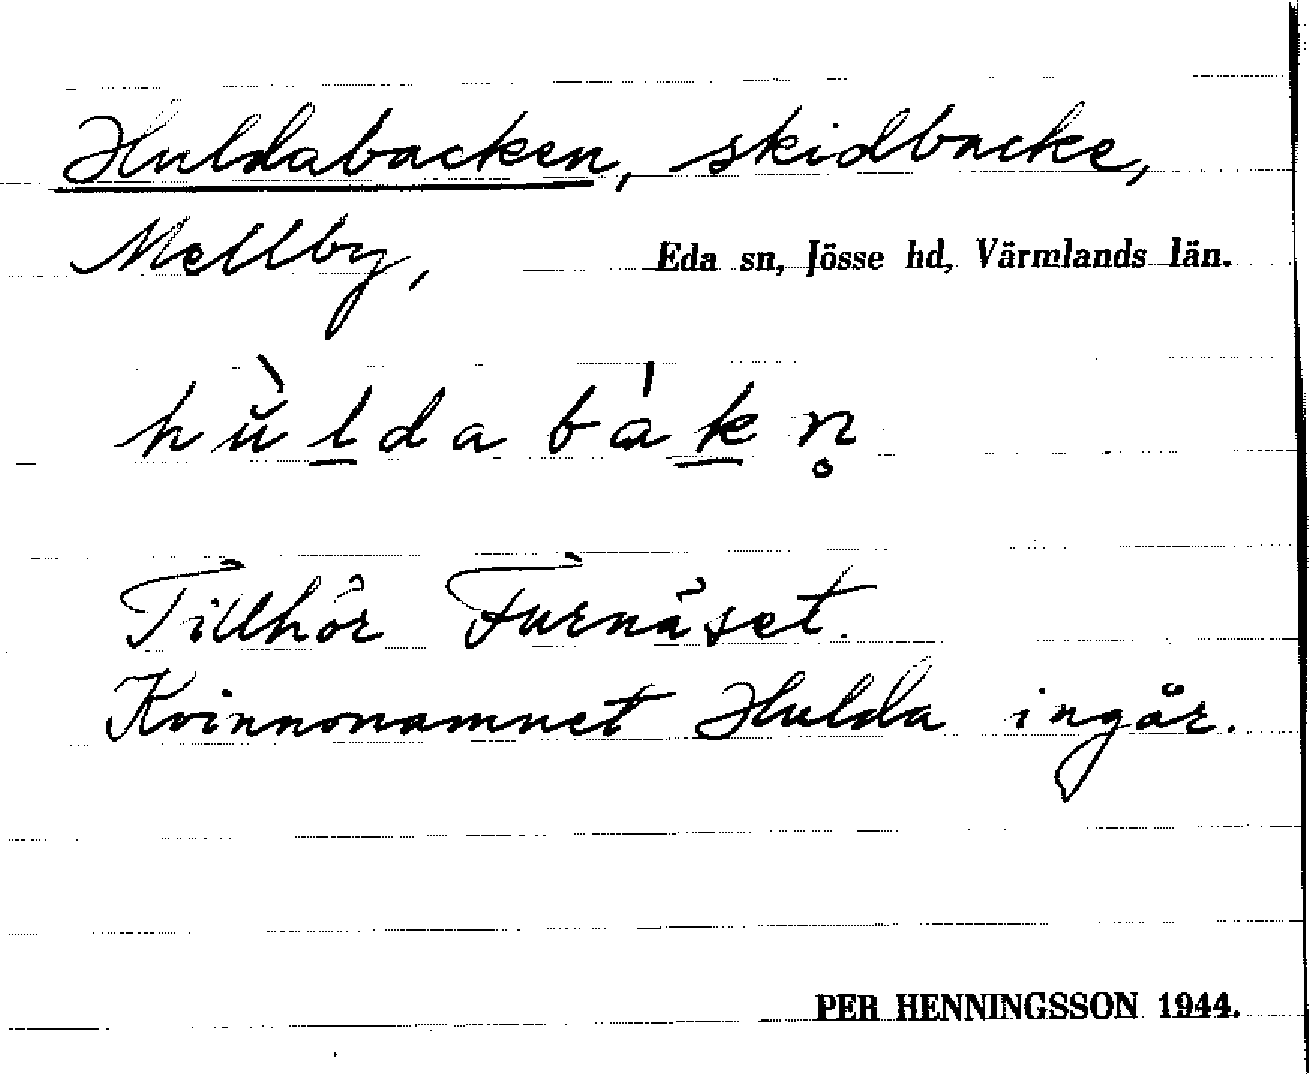 Huldabacken, skidbacke,
Mellby, Eda sn, Jösse hd, Värmlands län.
hù̆l̲dabák̲n̥
Tillhör Furnäset.
Kvinnonamnet Hulda ingår.
PER HENNINGSSON 1944.